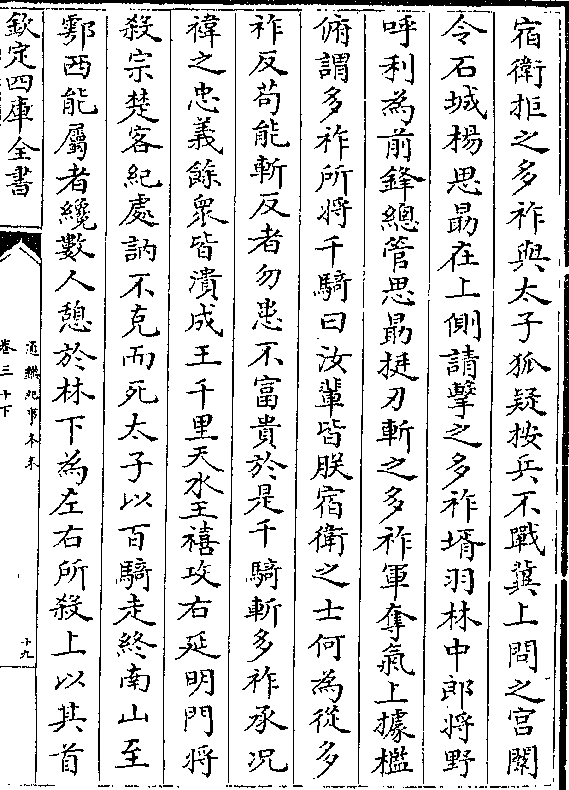 宿衛拒之多祚與太子狐疑按兵不戰冀上問之宫闈
令石城楊思勗在上側請擊之多祚壻羽林中郎將野
呼利為前鋒總管思勗挺刃斬之多祚軍奪氣上據檻
俯謂多祚所將千騎曰汝輩皆朕宿衛之士何為從多
祚反苟能斬反者勿患不富貴於是千騎斬多祚承況
禕之忠義餘衆皆潰成王千里天水王禧攻右延明門將
殺宗楚客紀處訥不克而死太子以百騎走終南山至
鄠西能屬者纔數人憩於林下為左右所殺上以其首
欽定四庫全書
通鑑紀事本末
卷三十下
十九